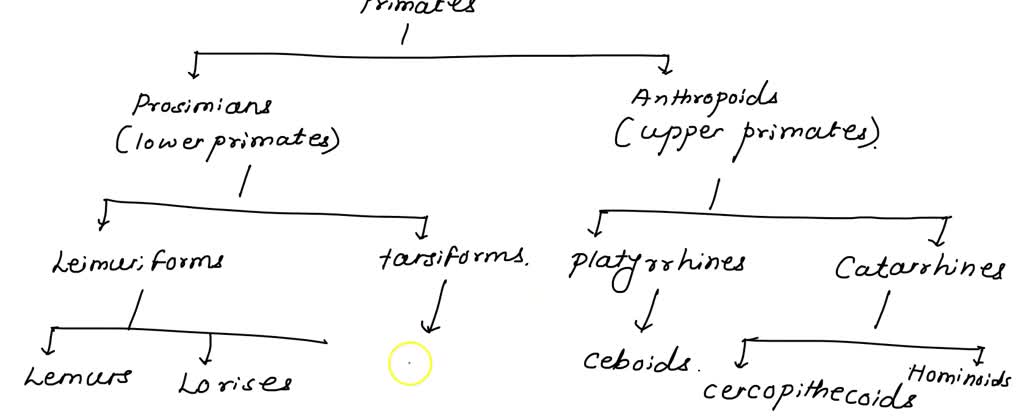 Primates
Prosimians
(lower primates)
Anthropoids
(upper primates).
Leimuriforms
tarsiforms.
Platyrrhines
Catarrhines
Lemurs
Lorises
ceboids.
cercopithecoids
Hominoids